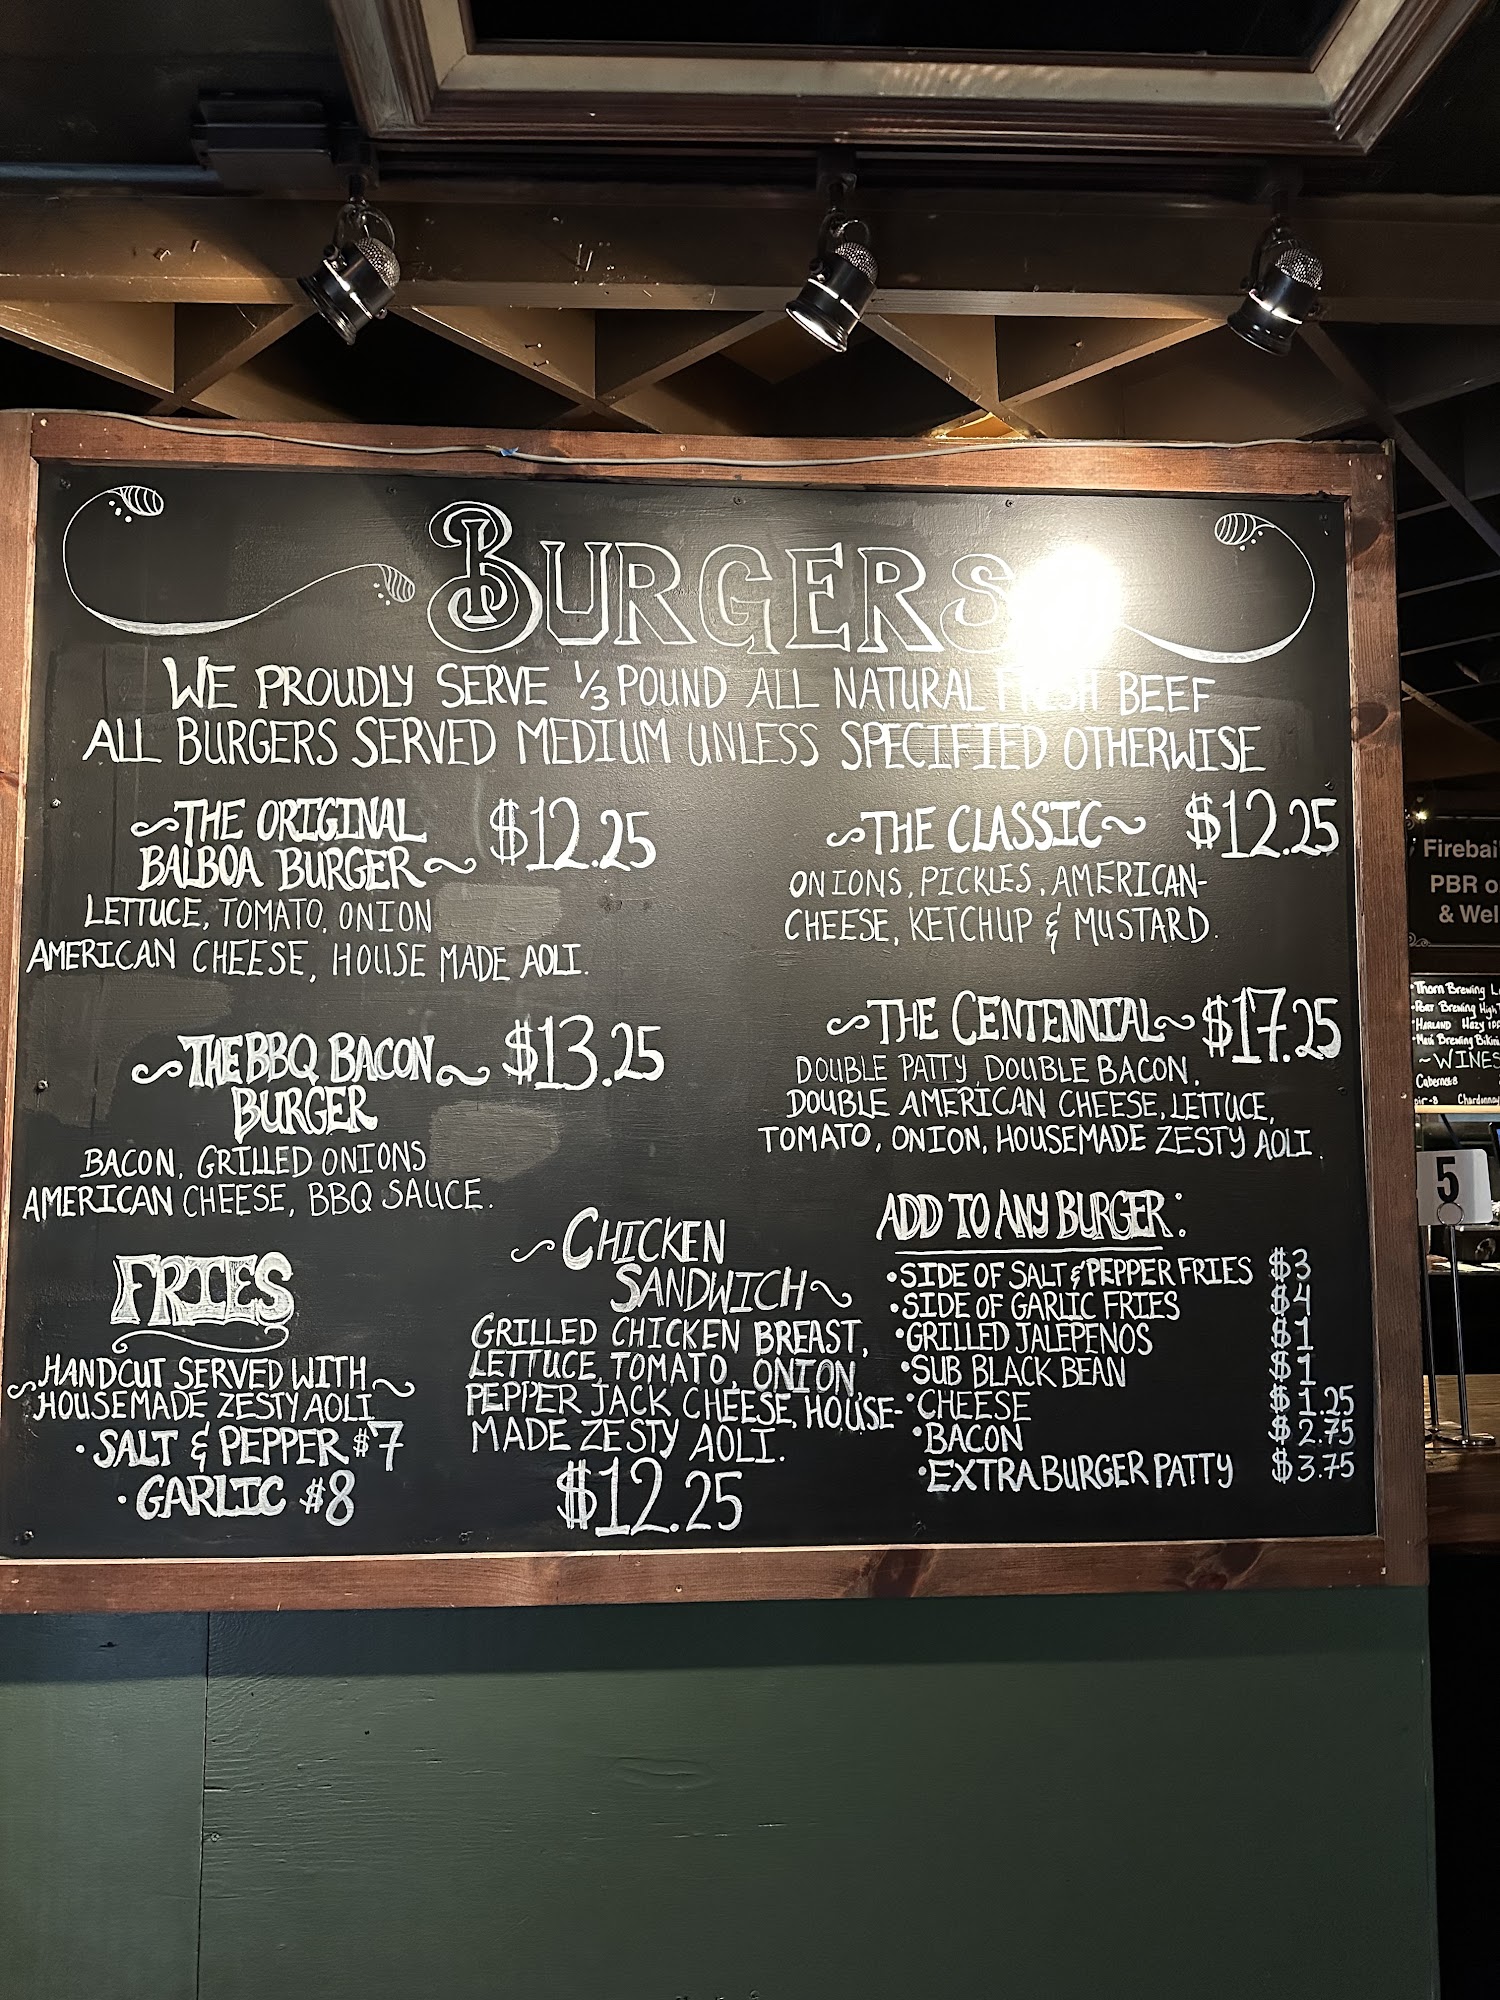 BURGERS
WE PROUDLY SERVE 1/3 POUND ALL NATURAL FRESH BEEF
ALL BURGERS SERVED MEDIUM UNLESS SPECIFIED OTHERWISE
~THE ORIGINAL
BALBOA BURGER~ $12.25
LETTUCE, TOMATO, ONION
AMERICAN CHEESE, HOUSE MADE AOLI.
~THE BBQ BACON~ $13.25
BURGER
BACON, GRILLED ONIONS
AMERICAN CHEESE, BBQ SAUCE.
~THE CLASSIC~ $12.25
ONIONS, PICKLES, AMERICAN-
CHEESE, KETCHUP & MUSTARD.
~THE CENTENNIAL~ $17.25
DOUBLE PATTY, DOUBLE BACON,
DOUBLE AMERICAN CHEESE, LETTUCE,
TOMATO, ONION, HOUSEMADE ZESTY AOLI.
FRIES
HANDCUT SERVED WITH
~HOUSEMADE ZESTY AOLI~
• SALT & PEPPER $7
• GARLIC $8
~CHICKEN
SANDWICH~
GRILLED CHICKEN BREAST,
LETTUCE, TOMATO, ONION,
PEPPER JACK CHEESE, HOUSE-
MADE ZESTY AOLI.
$12.25
ADD TO ANY BURGER:
• SIDE OF SALT & PEPPER FRIES $3
• SIDE OF GARLIC FRIES $4
• GRILLED JALEPENOS $1
• SUB BLACK BEAN $1
• CHEESE $1.25
• BACON $2.75
• EXTRA BURGER PATTY $3.75
Firebal
PBR o
& Wel
• Thorn Brewing
• Brewing High
• HARLAND Hazy IPA
Brewing
~WINES
Cabernet-8
Chardonnay
5